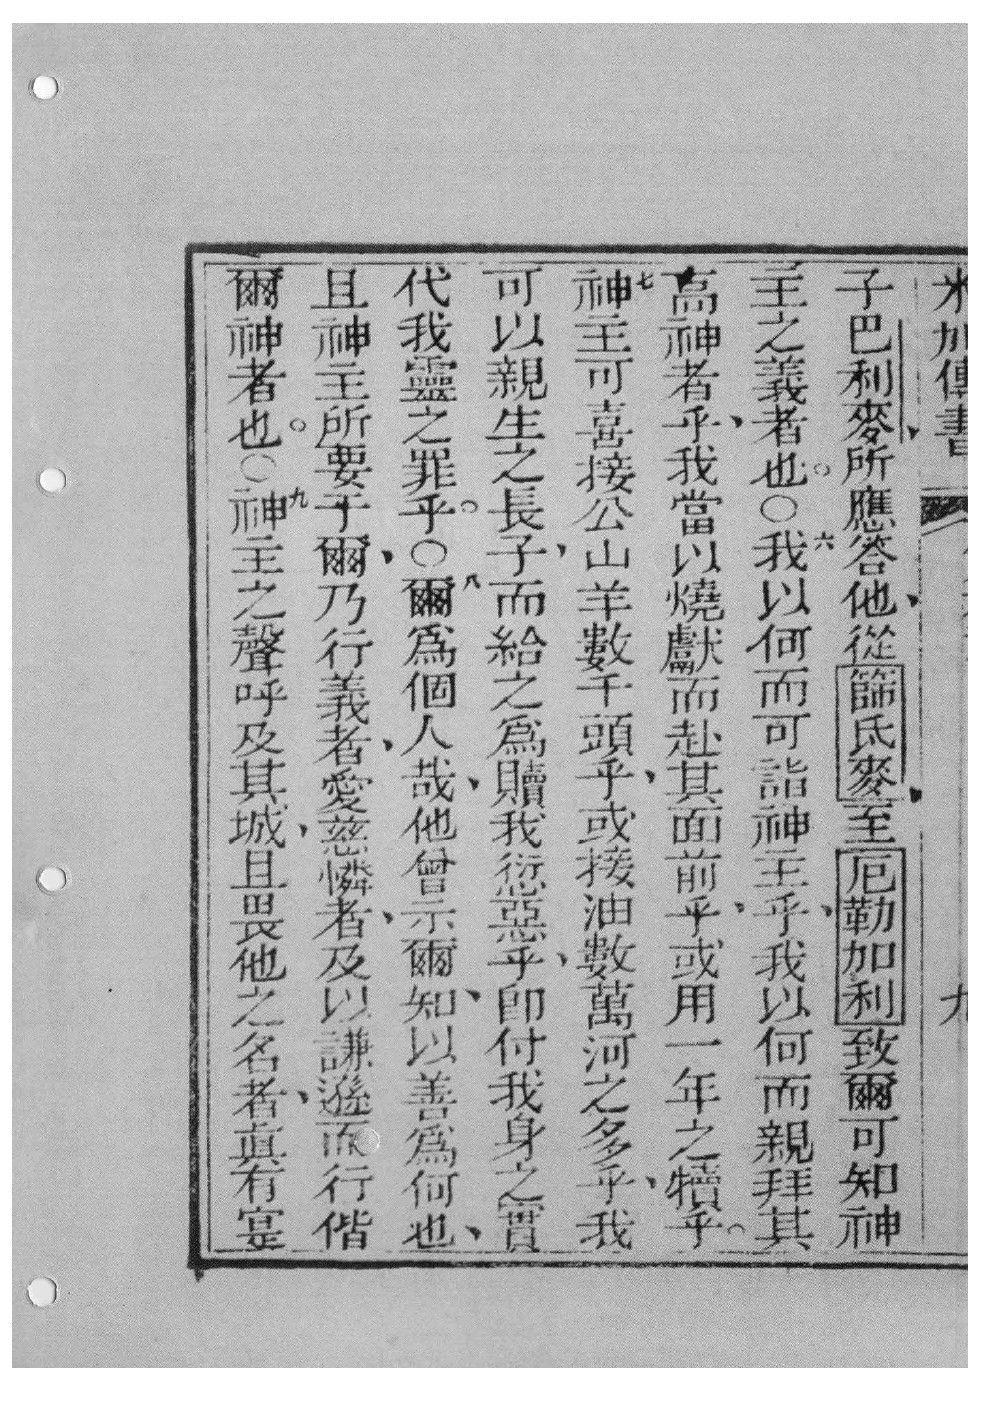 米加傳書 九
子巴利麥、所應答他、從篩氐麥、至厄勒加利致爾可知神
主之義者也。○六我以何而可詣神主乎、我以何而親拜其
高神者乎、我當以燒獻而赴其面前乎、或用一年之犢乎。
七神主可喜接公山羊數千頭乎、或接油數萬河之多乎、我
可以親生之長子、而給之爲贖我愆惡乎、卽付我身之實
代我靈之罪乎。○八爾爲個人哉、他曾示爾知、以善爲何也、
且神主所要于爾、乃行義者、愛慈憐者、及以謙遜而行偕
爾神者也。○九神主之聲呼及其城、且畏他之名者、眞有寔